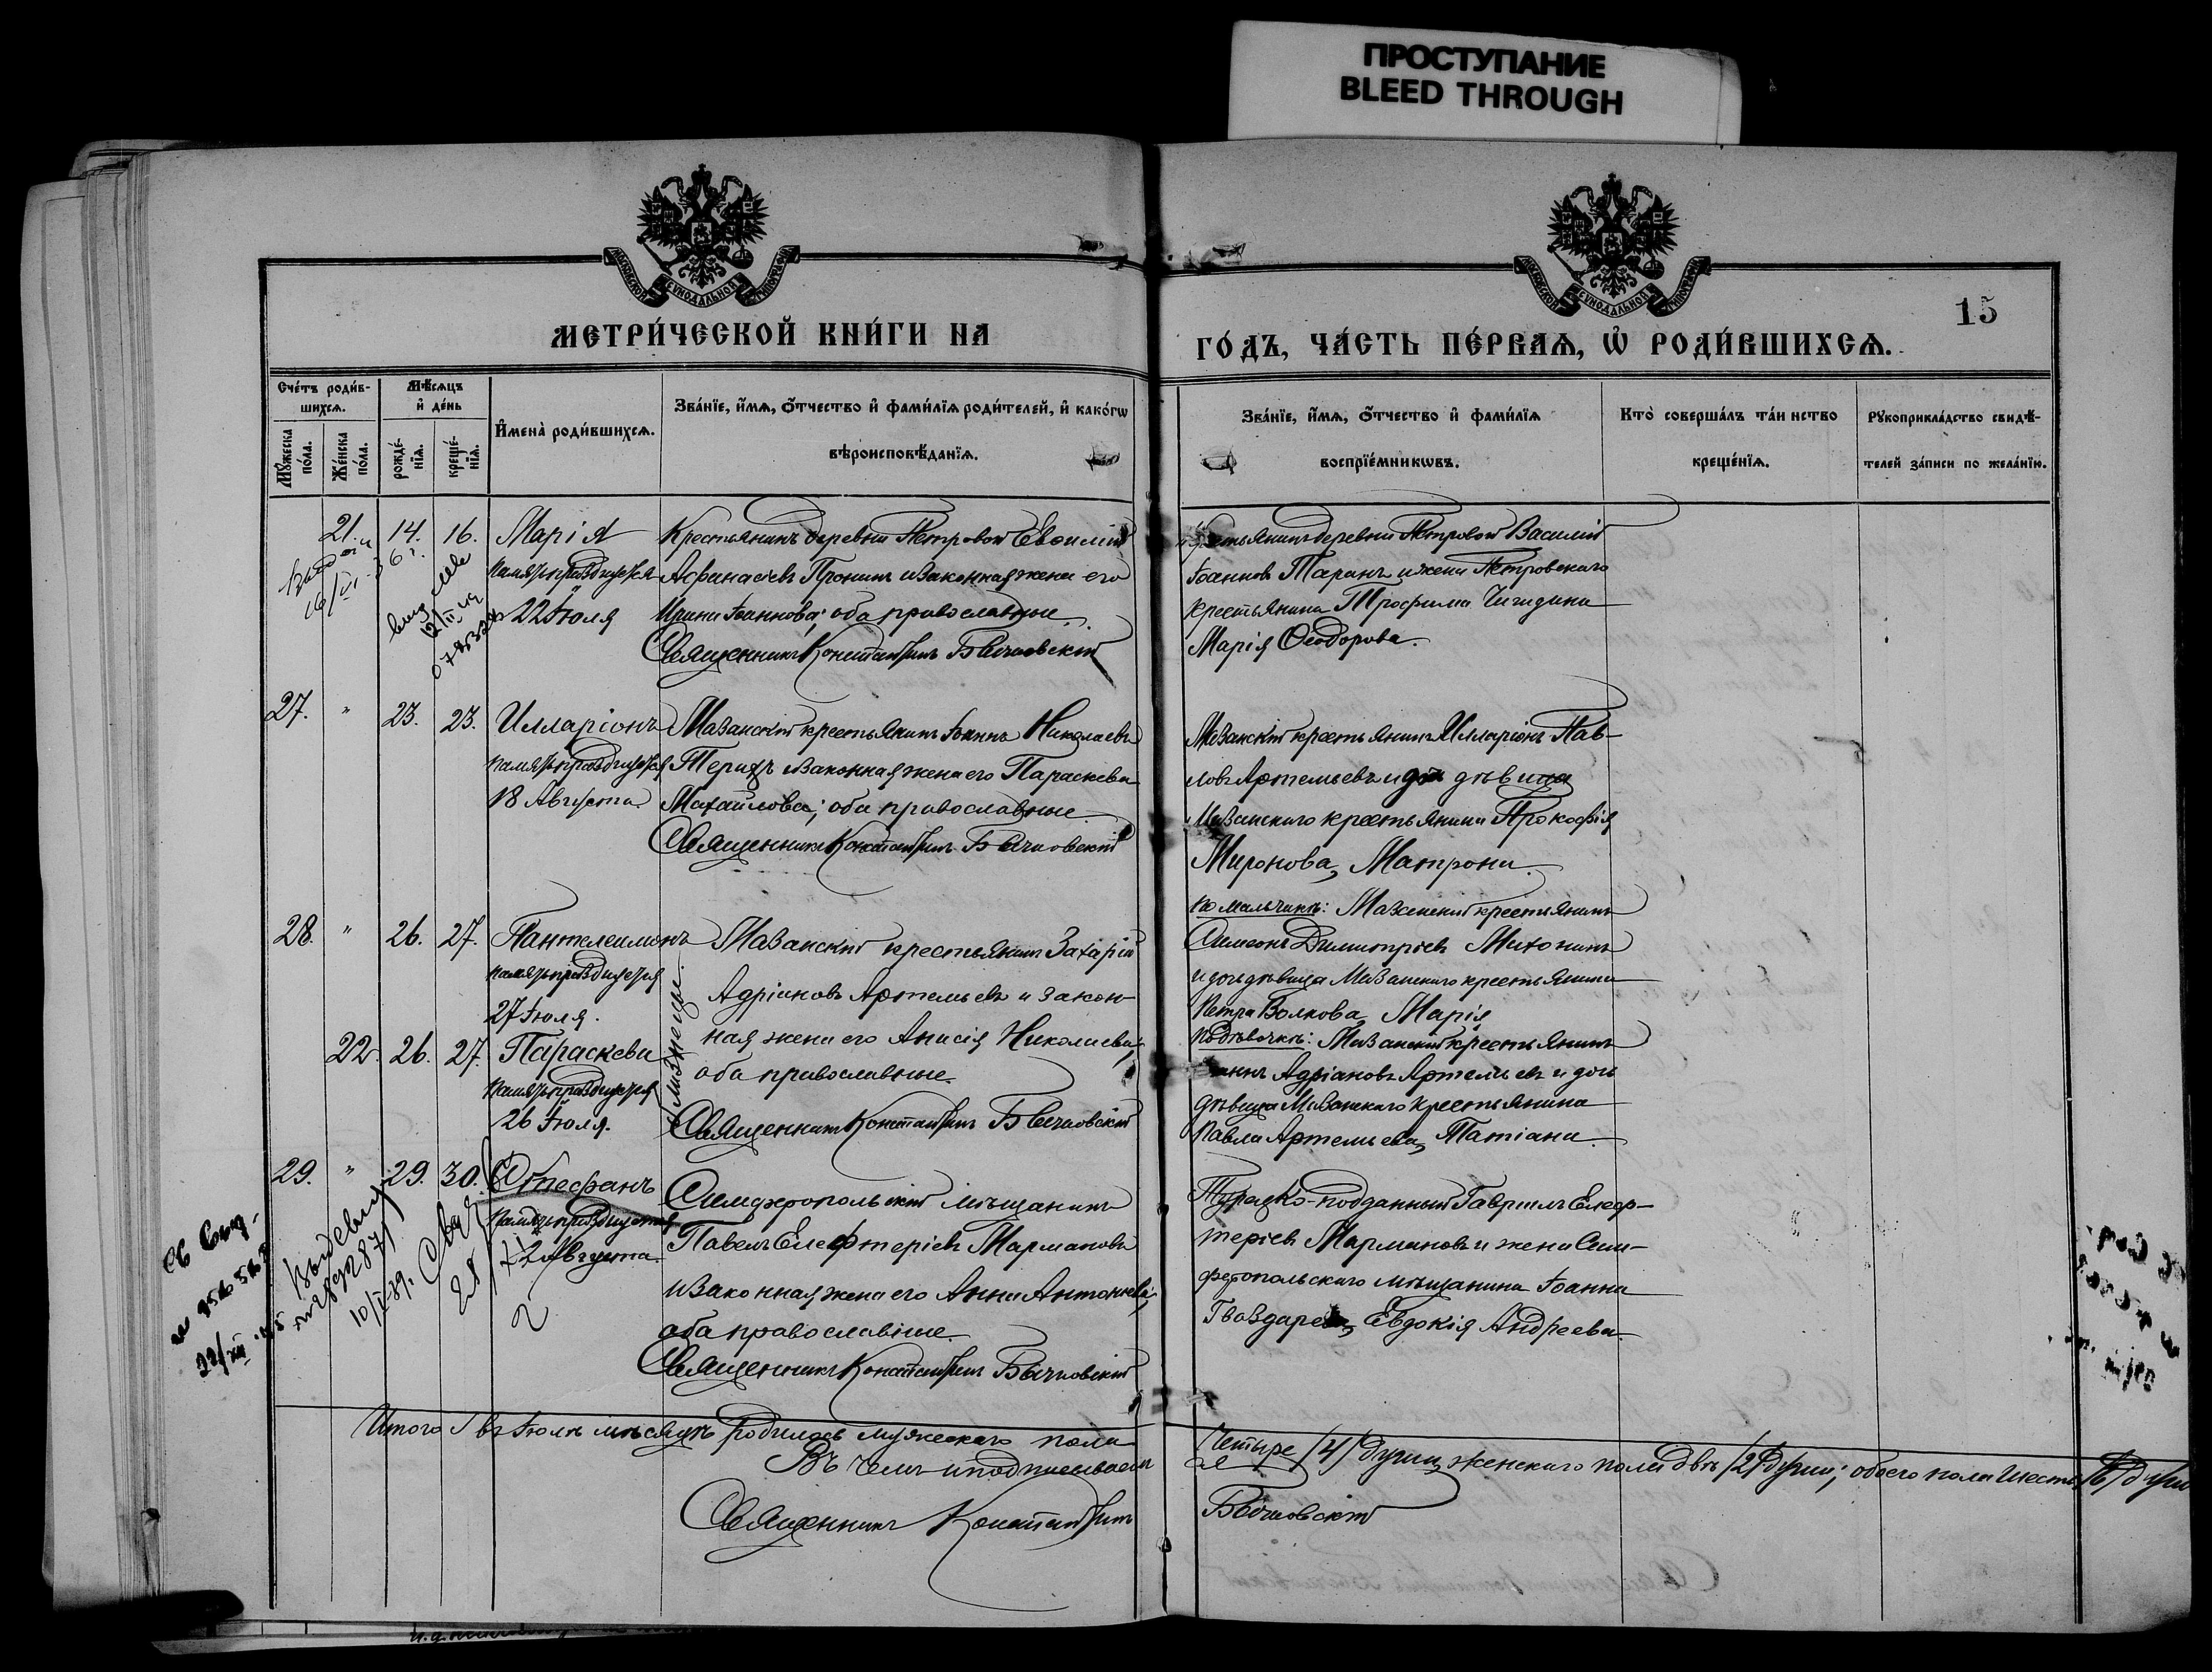 ПРОСТУПАНИЕ
BLEED THROUGH
МОСКОВСКОЙ СѴНОДАЛЬНОЙ ТИПОГРАФІИ
МОСКОВСКОЙ СѴНОДАЛЬНОЙ ТИПОГРАФІИ
15
МЕТРИ́ЧЕСКОЙ КНИ́ГИ НА
ГО́ДЪ, ЧА́СТЬ ПЕ́РВАѦ, Ѡ҆ РОДИ́ВШИХСѦ.
Сче́тъ роди́в-
шихсѧ.
Мѣ́сѧцъ
и҆ де́нь
Мꙋ́жеска по́ла.
Же́нска по́ла.
рожде́-нїѧ.
креще́-нїѧ.
И҆мена̀ роди́вшихсѧ.
Зва́нїе, и҆́мѧ, ѻ҆́тчество и҆ фами́лїѧ роди́телей, и҆ како́гѡ
вѣроисповѣ́данїѧ.
Зва́нїе, и҆́мѧ, ѻ҆́тчество и҆ фами́лїѧ
воспрїе́мникѡвъ.
Кто̀ соверша́лъ та́инство
креще́нїѧ.
Рꙋкоприкла́дство свидѣ́-
телей за́писи по жела́нїю.
21. 14. 16. Марія
22 Іюля
Крестьянинъ деревни Петровой Евѳимій
Аѳанасіевъ Пронинъ и законная жена его
Ирина Іоаннова; оба православные.
Священникъ Константинъ Бычковскій
Крестьянинъ деревни Петровой Василій
Іоанновъ Таранъ и жена Петровскаго
крестьянина Трофима Чигидина
Марія Ѳеодорова.
27. " 23. 23. Илларіонъ
18 Августа
Мазанскій крестьянинъ Іоаннъ Николаевъ
и законная жена его Параскева
Михайлова; оба православные.
Священникъ Константинъ Бычковскій
Мазанскій крестьянинъ Илларіонъ Пав-
ловъ Артемьевъ и дѣвица
Мазанскаго крестьянина Прокофія
Миронова, Матрона.
28. " 26. 27. Пантелеимонъ
27 Іюля.
22. 26. 27. Параскева
26 Іюля.
близнецы.
Мазанскій крестьянинъ Захарій
Адріановъ Артемьевъ и закон-
ная жена его Анисія Николаева;
оба православные.
Священникъ Константинъ Бычковскій
по мальчикѣ: Мазанскій крестьянинъ
Симеонъ Димитріевъ Митонинъ
и дочь дѣвица Мазанскаго крестьянина
Петра Волкова, Марія
по дѣвочкѣ: Мазанскій крестьянинъ
Іоаннъ Адріановъ Артемьевъ и дочь
дѣвица Мазанскаго крестьянина
Павла Артемьева, Татіана.
29. " 29. 30. Стефанъ
2 Августа
Симферопольскій мѣщанинъ
Павелъ Елефтеріевъ Мармановъ
и законная жена его Анна Антоніева;
оба православные.
Священникъ Константинъ Бычковскій
Турецко-подданный Гавріилъ Елеф-
теріевъ Мармановъ и жена Сим-
феропольскаго мѣщанина Іоанна
Гвоздарева, Евдокія Андреева
Итого въ Іюлѣ мѣсяцѣ родилось мужескаго пола
Четыре /4/ души, женскаго пола двѣ /2/ души; обоего пола шесть /6/ душъ
Въ чемъ и подписываемъ
Священникъ Константинъ
Бычковскій